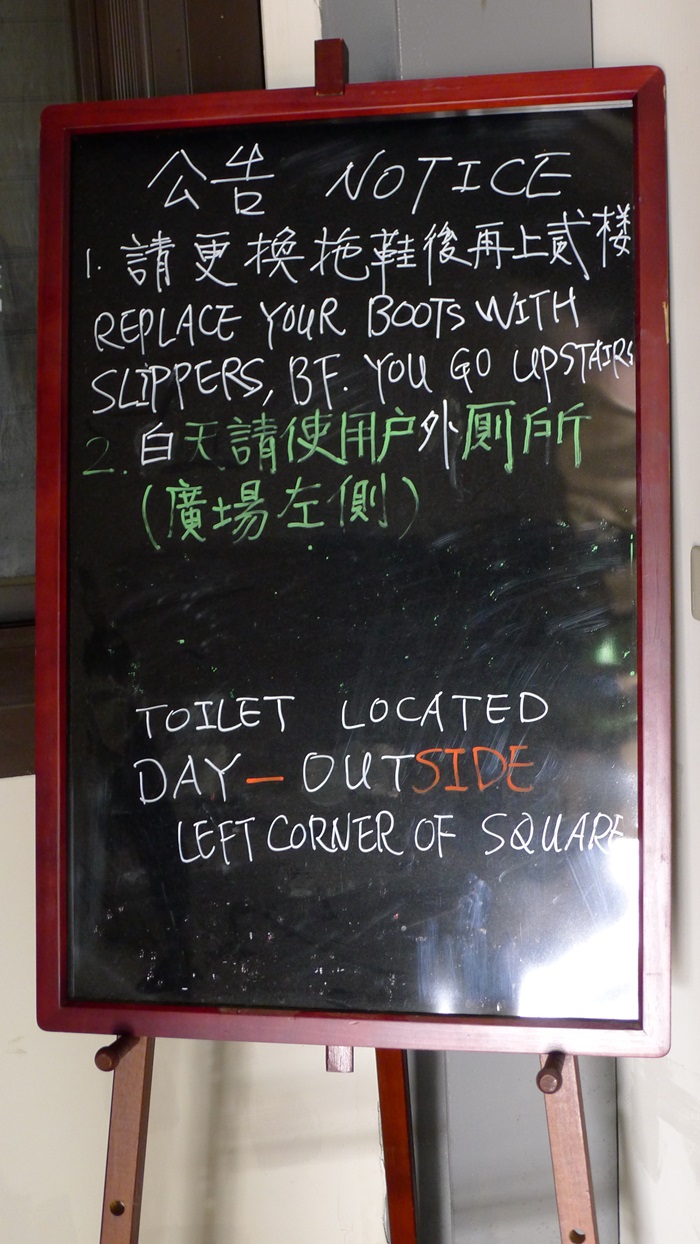 公告 NOTICE
1. 請更換拖鞋後再上貳楼
REPLACE YOUR BOOTS WITH
SLIPPERS, BF. YOU GO UPSTAIRS
2. 白天請使用户外厠所
(廣場左側)
TOILET LOCATED
DAY - OUTSIDE
LEFT CORNER OF SQUARE